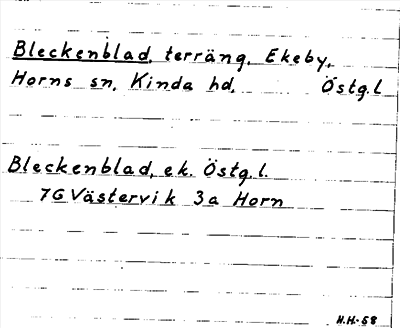 Bleckenblad, terräng, Ekeby,
Horns sn, Kinda hd, Östg.l
Bleckenblad, ek. Östg.l.
7G Västervik 3a Horn
H.H-58